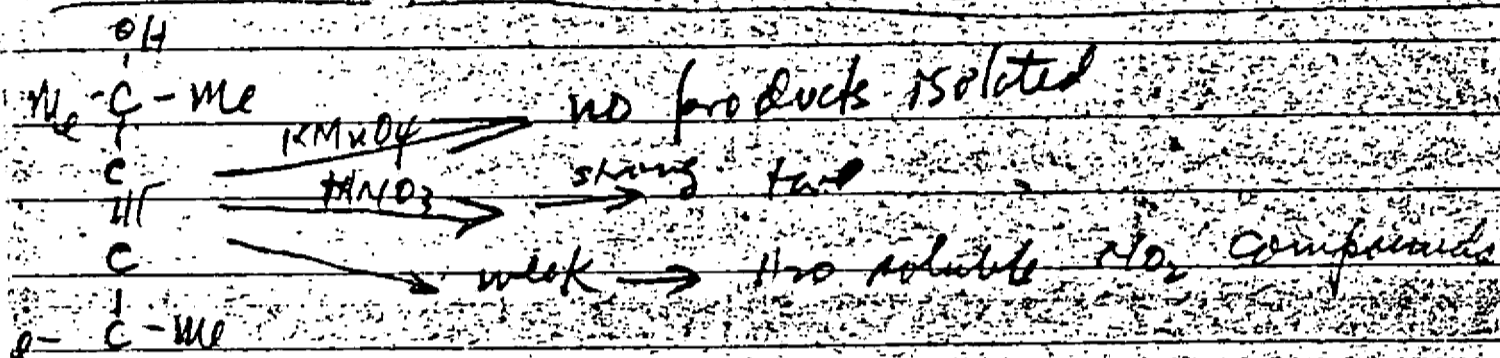 OH
Me - C - Me
no products isolated
KMnO4
C
HNO3 strong tar
|||
C
weak → H2O soluble NO2 compounds
C - Me